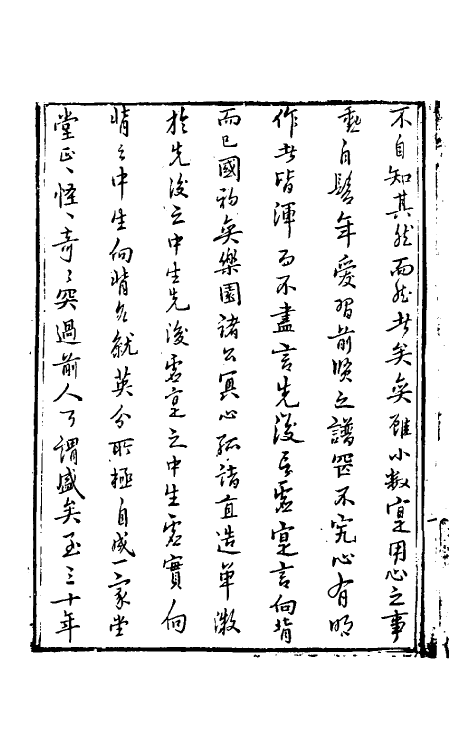 不自知其然而然者矣奕雖小數寔用心之事
勳自髫年愛習前賢之譜罔不究心有明
作者皆渾而不盡言先後言虛寔言向背
而已國初奕樂園諸公冥心孤詣直造單微
於先後之中生先後虛寔之中生虛實向
背之中生向背各就英分所極自成一家堂
堂正〻怪〻奇〻突過前人可謂盛矣至三十年